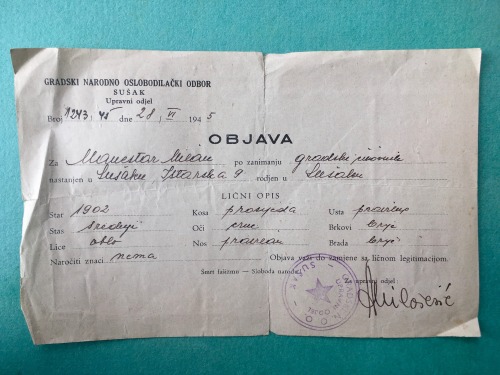 GRADSKI NARODNO OSLOBODILAČKI ODBOR
SUŠAK
Upravni odjel
Broj 1243/45 dne 28. VI 1945
OBJAVA
Za Manestar Milan po zanimanju gradski
nastanjen u Sušaku 9 rodjen u Sušaku
LIČNI OPIS
Star 1902 Kosa prosjeda Usta pravilna
Stas srednji Oči crne Brkovi brije
Lice oblo Nos pravilan Brada brije
Naročiti znaci nema Objava važi do zamjene sa ličnom legitimacijom.
Smrt fašizmu — Sloboda narodu!
Za upravni odjel
SUŠAK